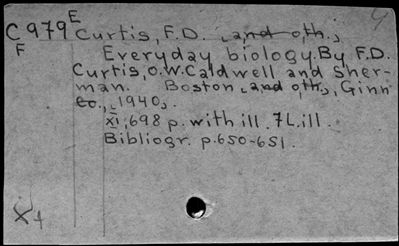 C 979 E Curtis, F.D. and oth.,
F Everyday biology. By F.D.
Curtis, O.W. Caldwell and Sher-
man. Boston and oth., Ginn
co., 1940.
XI, 698 p. with ill. 7 L. ill.
Bibliogr. p. 650-651.
X4